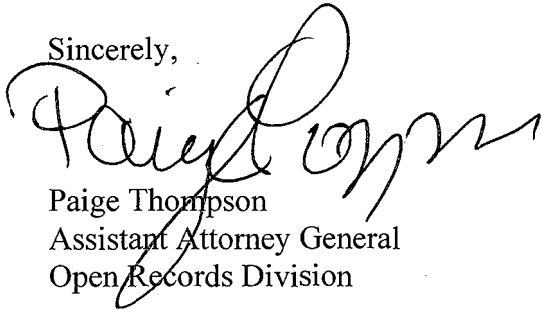 Sincerely,
Paige
Paige Thompson
Assistant Attorney General
Open Records Division